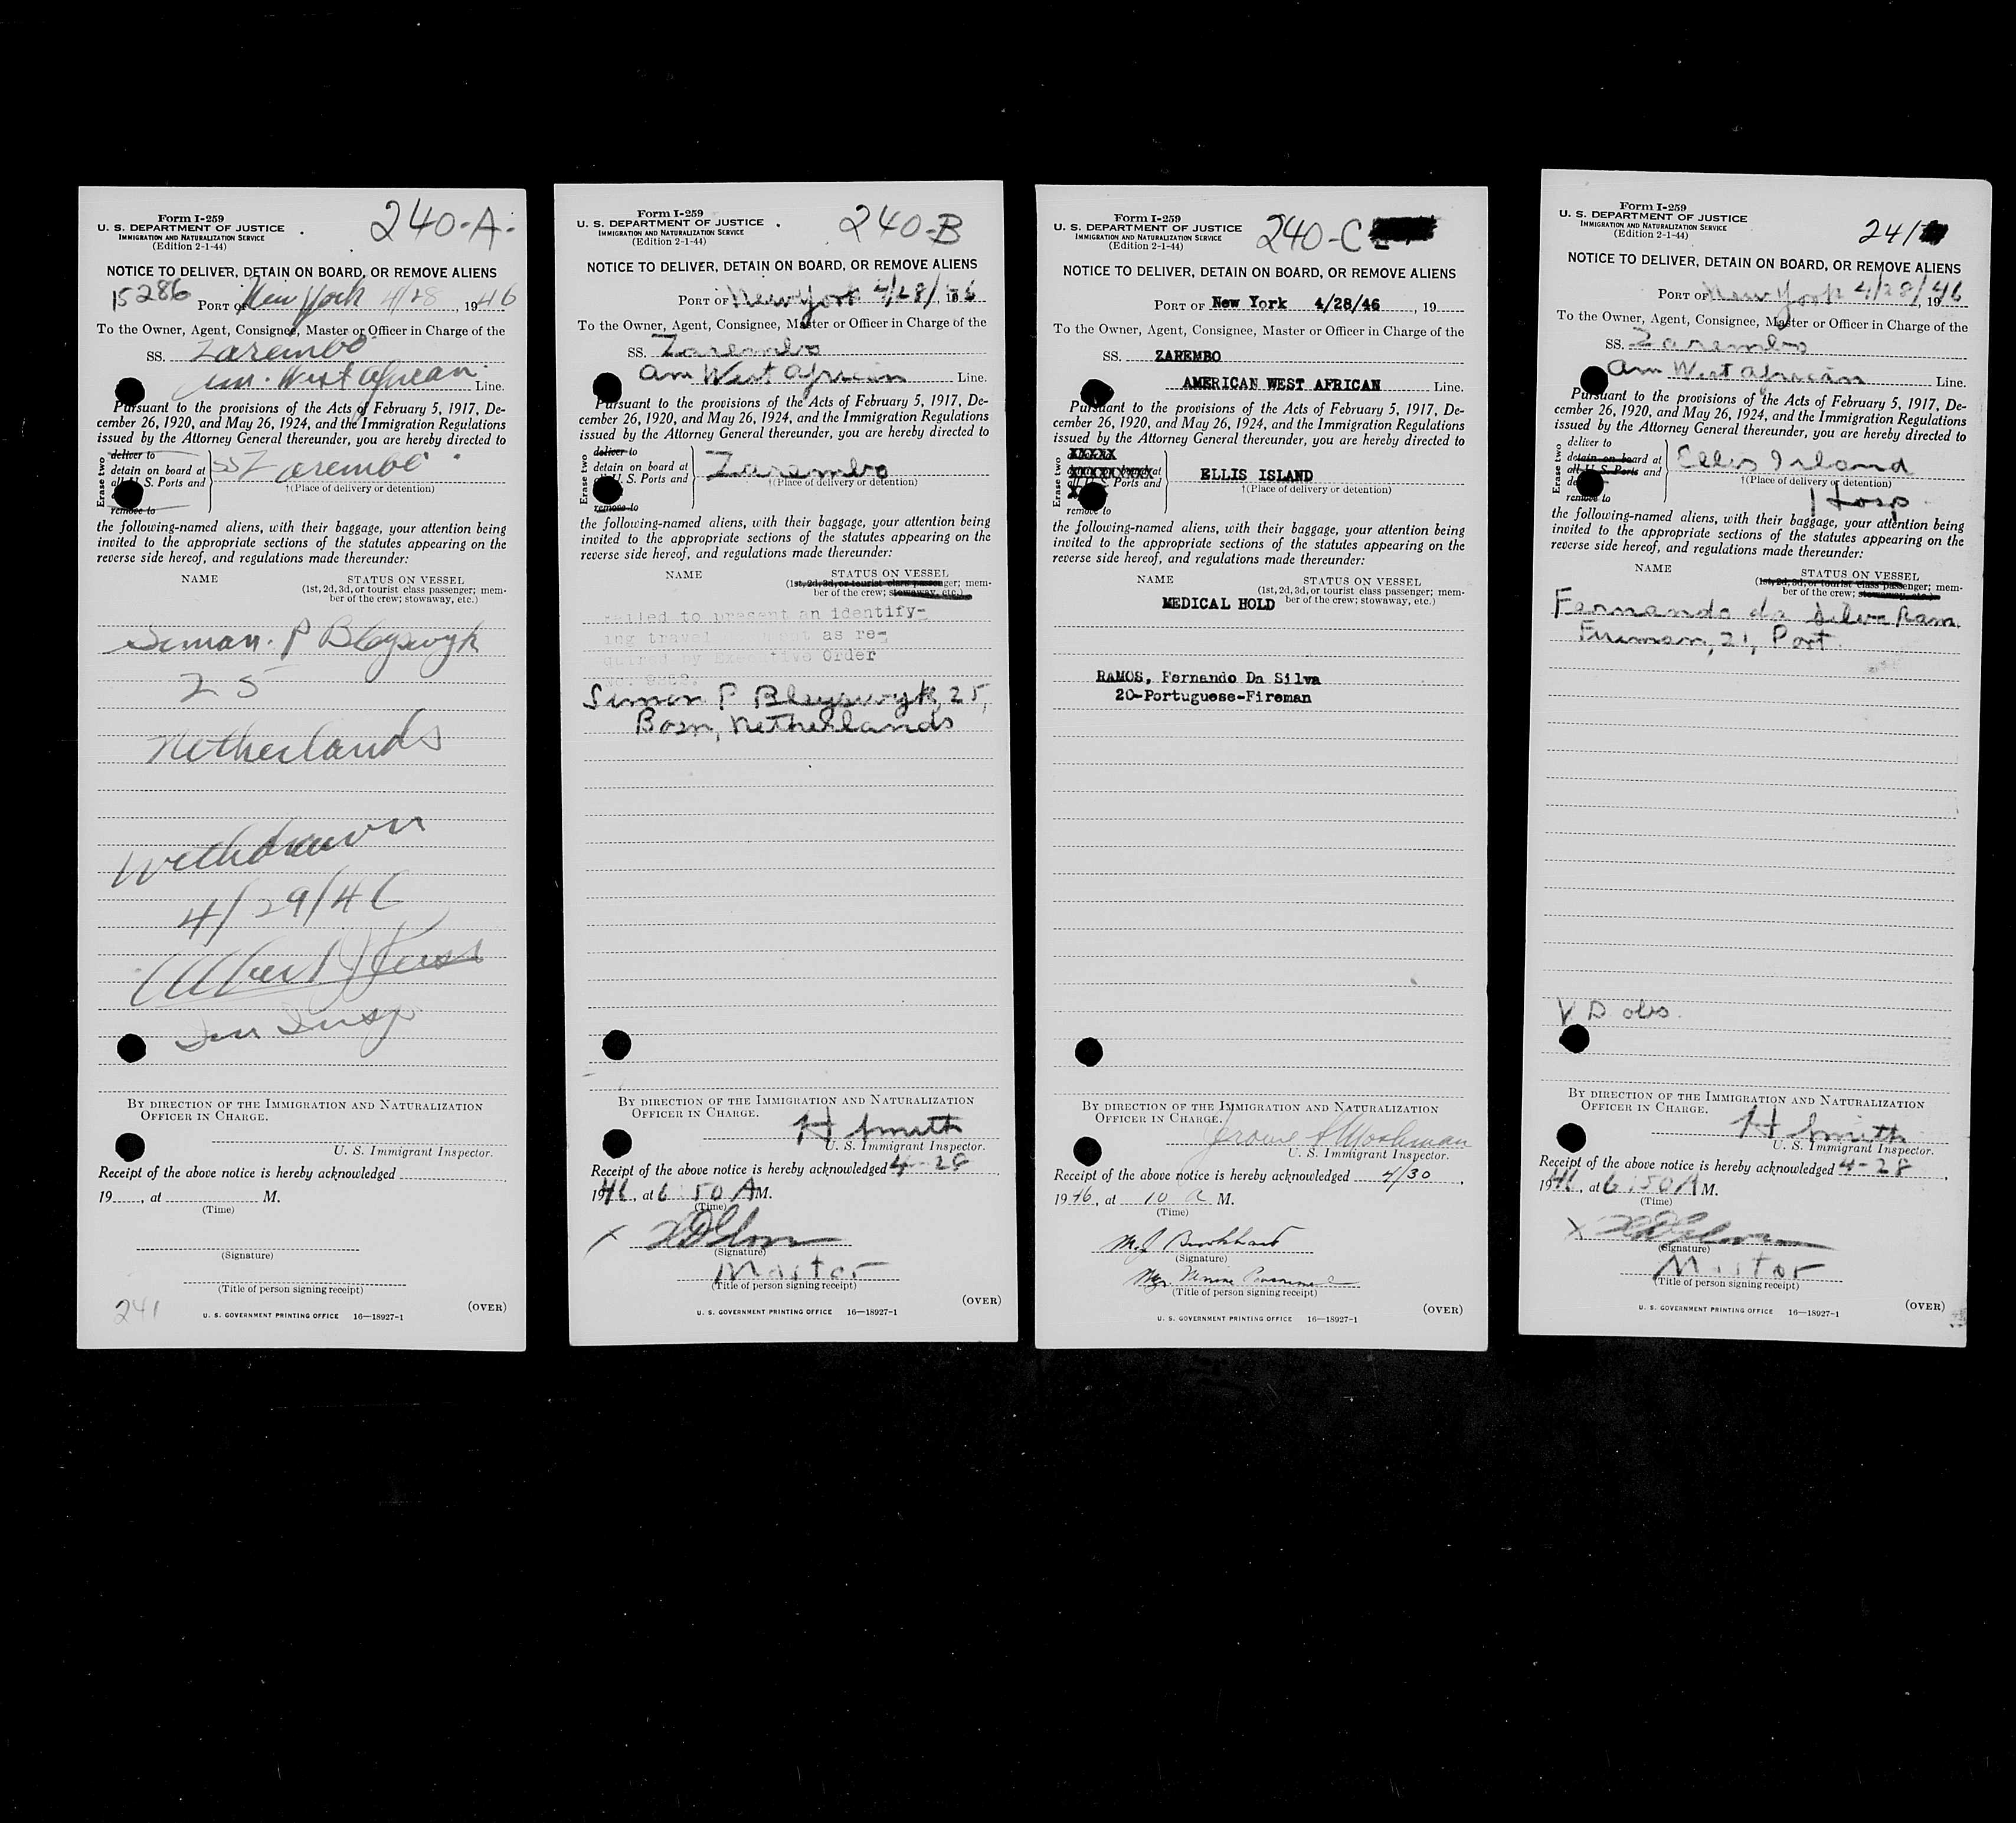 Form I-259
U. S. DEPARTMENT OF JUSTICE
IMMIGRATION AND NATURALIZATION SERVICE
(Edition 2-1-44)
240-A-
NOTICE TO DELIVER, DETAIN ON BOARD, OR REMOVE ALIENS
15286
PORT OF New York 4/28, 1946
To the Owner, Agent, Consignee, Master or Officer in Charge of the
SS. Zarembo
Am. West African Line.
Pursuant to the provisions of the Acts of February 5, 1917, De-
cember 26, 1920, and May 26, 1924, and the Immigration Regulations
issued by the Attorney General thereunder, you are hereby directed to
Erase two
deliver to
detain on board at
all U. S. Ports and
remove to
SS Zarembo
†(Place of delivery or detention)
the following-named aliens, with their baggage, your attention being
invited to the appropriate sections of the statutes appearing on the
reverse side hereof, and regulations made thereunder:
NAME STATUS ON VESSEL
(1st, 2d, 3d, or tourist class passenger; mem-
ber of the crew; stowaway, etc.)
Simon. P Bleyswyk
25
Netherlands
Withdrawn
4/29/46
Imm Insp
BY DIRECTION OF THE IMMIGRATION AND NATURALIZATION
OFFICER IN CHARGE.
U. S. Immigrant Inspector.
Receipt of the above notice is hereby acknowledged
19, at M.
(Time)
(Signature)
(Title of person signing receipt)
241
(OVER)
U. S. GOVERNMENT PRINTING OFFICE 16—18927-1
Form I-259
U. S. DEPARTMENT OF JUSTICE
IMMIGRATION AND NATURALIZATION SERVICE
(Edition 2-1-44)
240-B
NOTICE TO DELIVER, DETAIN ON BOARD, OR REMOVE ALIENS
PORT OF New York 4/28/, 1946
To the Owner, Agent, Consignee, Master or Officer in Charge of the
SS. Zarembo
Am West African Line.
Pursuant to the provisions of the Acts of February 5, 1917, De-
cember 26, 1920, and May 26, 1924, and the Immigration Regulations
issued by the Attorney General thereunder, you are hereby directed to
Erase two
deliver to
detain on board at
all U. S. Ports and
remove to
Zarembo
†(Place of delivery or detention)
the following-named aliens, with their baggage, your attention being
invited to the appropriate sections of the statutes appearing on the
reverse side hereof, and regulations made thereunder:
NAME STATUS ON VESSEL
(1st, 2d, 3d, or tourist class passenger; mem-
ber of the crew; stowaway, etc.)
Failed to present an identify-
ing travel document as re-
quired by Executive Order
Simon P Bleyswyk, 25,
Bosn, Netherlands
BY DIRECTION OF THE IMMIGRATION AND NATURALIZATION
OFFICER IN CHARGE.
H Smith
U. S. Immigrant Inspector.
Receipt of the above notice is hereby acknowledged 4-28
1946, at 6:50 A M.
(Time)
X
(Signature)
Master
(Title of person signing receipt)
(OVER)
U. S. GOVERNMENT PRINTING OFFICE 16—18927-1
Form I-259
U. S. DEPARTMENT OF JUSTICE
IMMIGRATION AND NATURALIZATION SERVICE
(Edition 2-1-44)
240-C
NOTICE TO DELIVER, DETAIN ON BOARD, OR REMOVE ALIENS
PORT OF New York 4/28/46, 19
To the Owner, Agent, Consignee, Master or Officer in Charge of the
SS. ZAREMBO
AMERICAN WEST AFRICAN Line.
Pursuant to the provisions of the Acts of February 5, 1917, De-
cember 26, 1920, and May 26, 1924, and the Immigration Regulations
issued by the Attorney General thereunder, you are hereby directed to
Erase two
all U. S. Ports and
remove to
ELLIS ISLAND
†(Place of delivery or detention)
the following-named aliens, with their baggage, your attention being
invited to the appropriate sections of the statutes appearing on the
reverse side hereof, and regulations made thereunder:
NAME STATUS ON VESSEL
(1st, 2d, 3d, or tourist class passenger; mem-
MEDICAL HOLD ber of the crew; stowaway, etc.)
RAMOS, Fernando Da Silva
20-Portuguese-Fireman
BY DIRECTION OF THE IMMIGRATION AND NATURALIZATION
OFFICER IN CHARGE.
U. S. Immigrant Inspector.
Receipt of the above notice is hereby acknowledged 4/30,
1946, at 10 a M.
(Time)
(Signature)
(Title of person signing receipt)
(OVER)
U. S. GOVERNMENT PRINTING OFFICE 16—18927-1
Form I-259
U. S. DEPARTMENT OF JUSTICE
IMMIGRATION AND NATURALIZATION SERVICE
(Edition 2-1-44)
241
NOTICE TO DELIVER, DETAIN ON BOARD, OR REMOVE ALIENS
PORT OF New York 4/28/, 1946
To the Owner, Agent, Consignee, Master or Officer in Charge of the
SS. Zarembo
Am West African Line.
Pursuant to the provisions of the Acts of February 5, 1917, De-
cember 26, 1920, and May 26, 1924, and the Immigration Regulations
issued by the Attorney General thereunder, you are hereby directed to
Erase two
deliver to
detain on board at
all U. S. Ports and
remove to
Ellis Island
†(Place of delivery or detention)
Hosp
the following-named aliens, with their baggage, your attention being
invited to the appropriate sections of the statutes appearing on the
reverse side hereof, and regulations made thereunder:
NAME STATUS ON VESSEL
(1st, 2d, 3d, or tourist class passenger; mem-
ber of the crew; stowaway, etc.)
Fernando da Silva Ram.
Fireman, 21, Port.
V D obs.
BY DIRECTION OF THE IMMIGRATION AND NATURALIZATION
OFFICER IN CHARGE.
H Smith
U. S. Immigrant Inspector.
Receipt of the above notice is hereby acknowledged 4-28,
1946, at 6:50 A M.
(Time)
X
(Signature)
Master
(Title of person signing receipt)
(OVER)
U. S. GOVERNMENT PRINTING OFFICE 16—18927-1